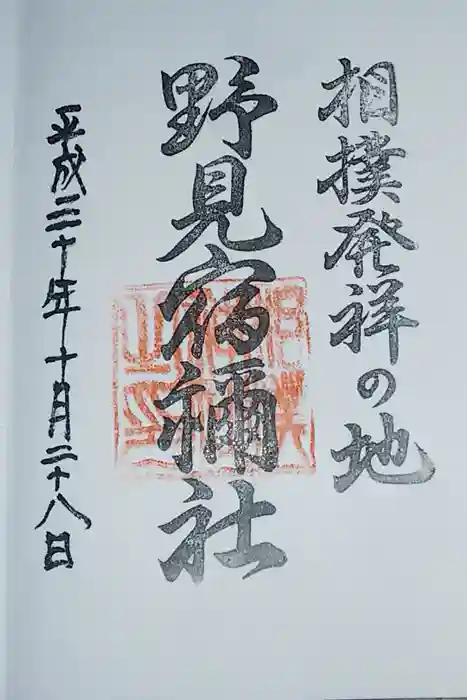 相撲発祥の地
野見宿禰社
平成三十年十月二十八日